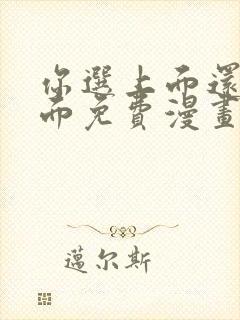 你選上而還
而免費漫畫
邁尔斯